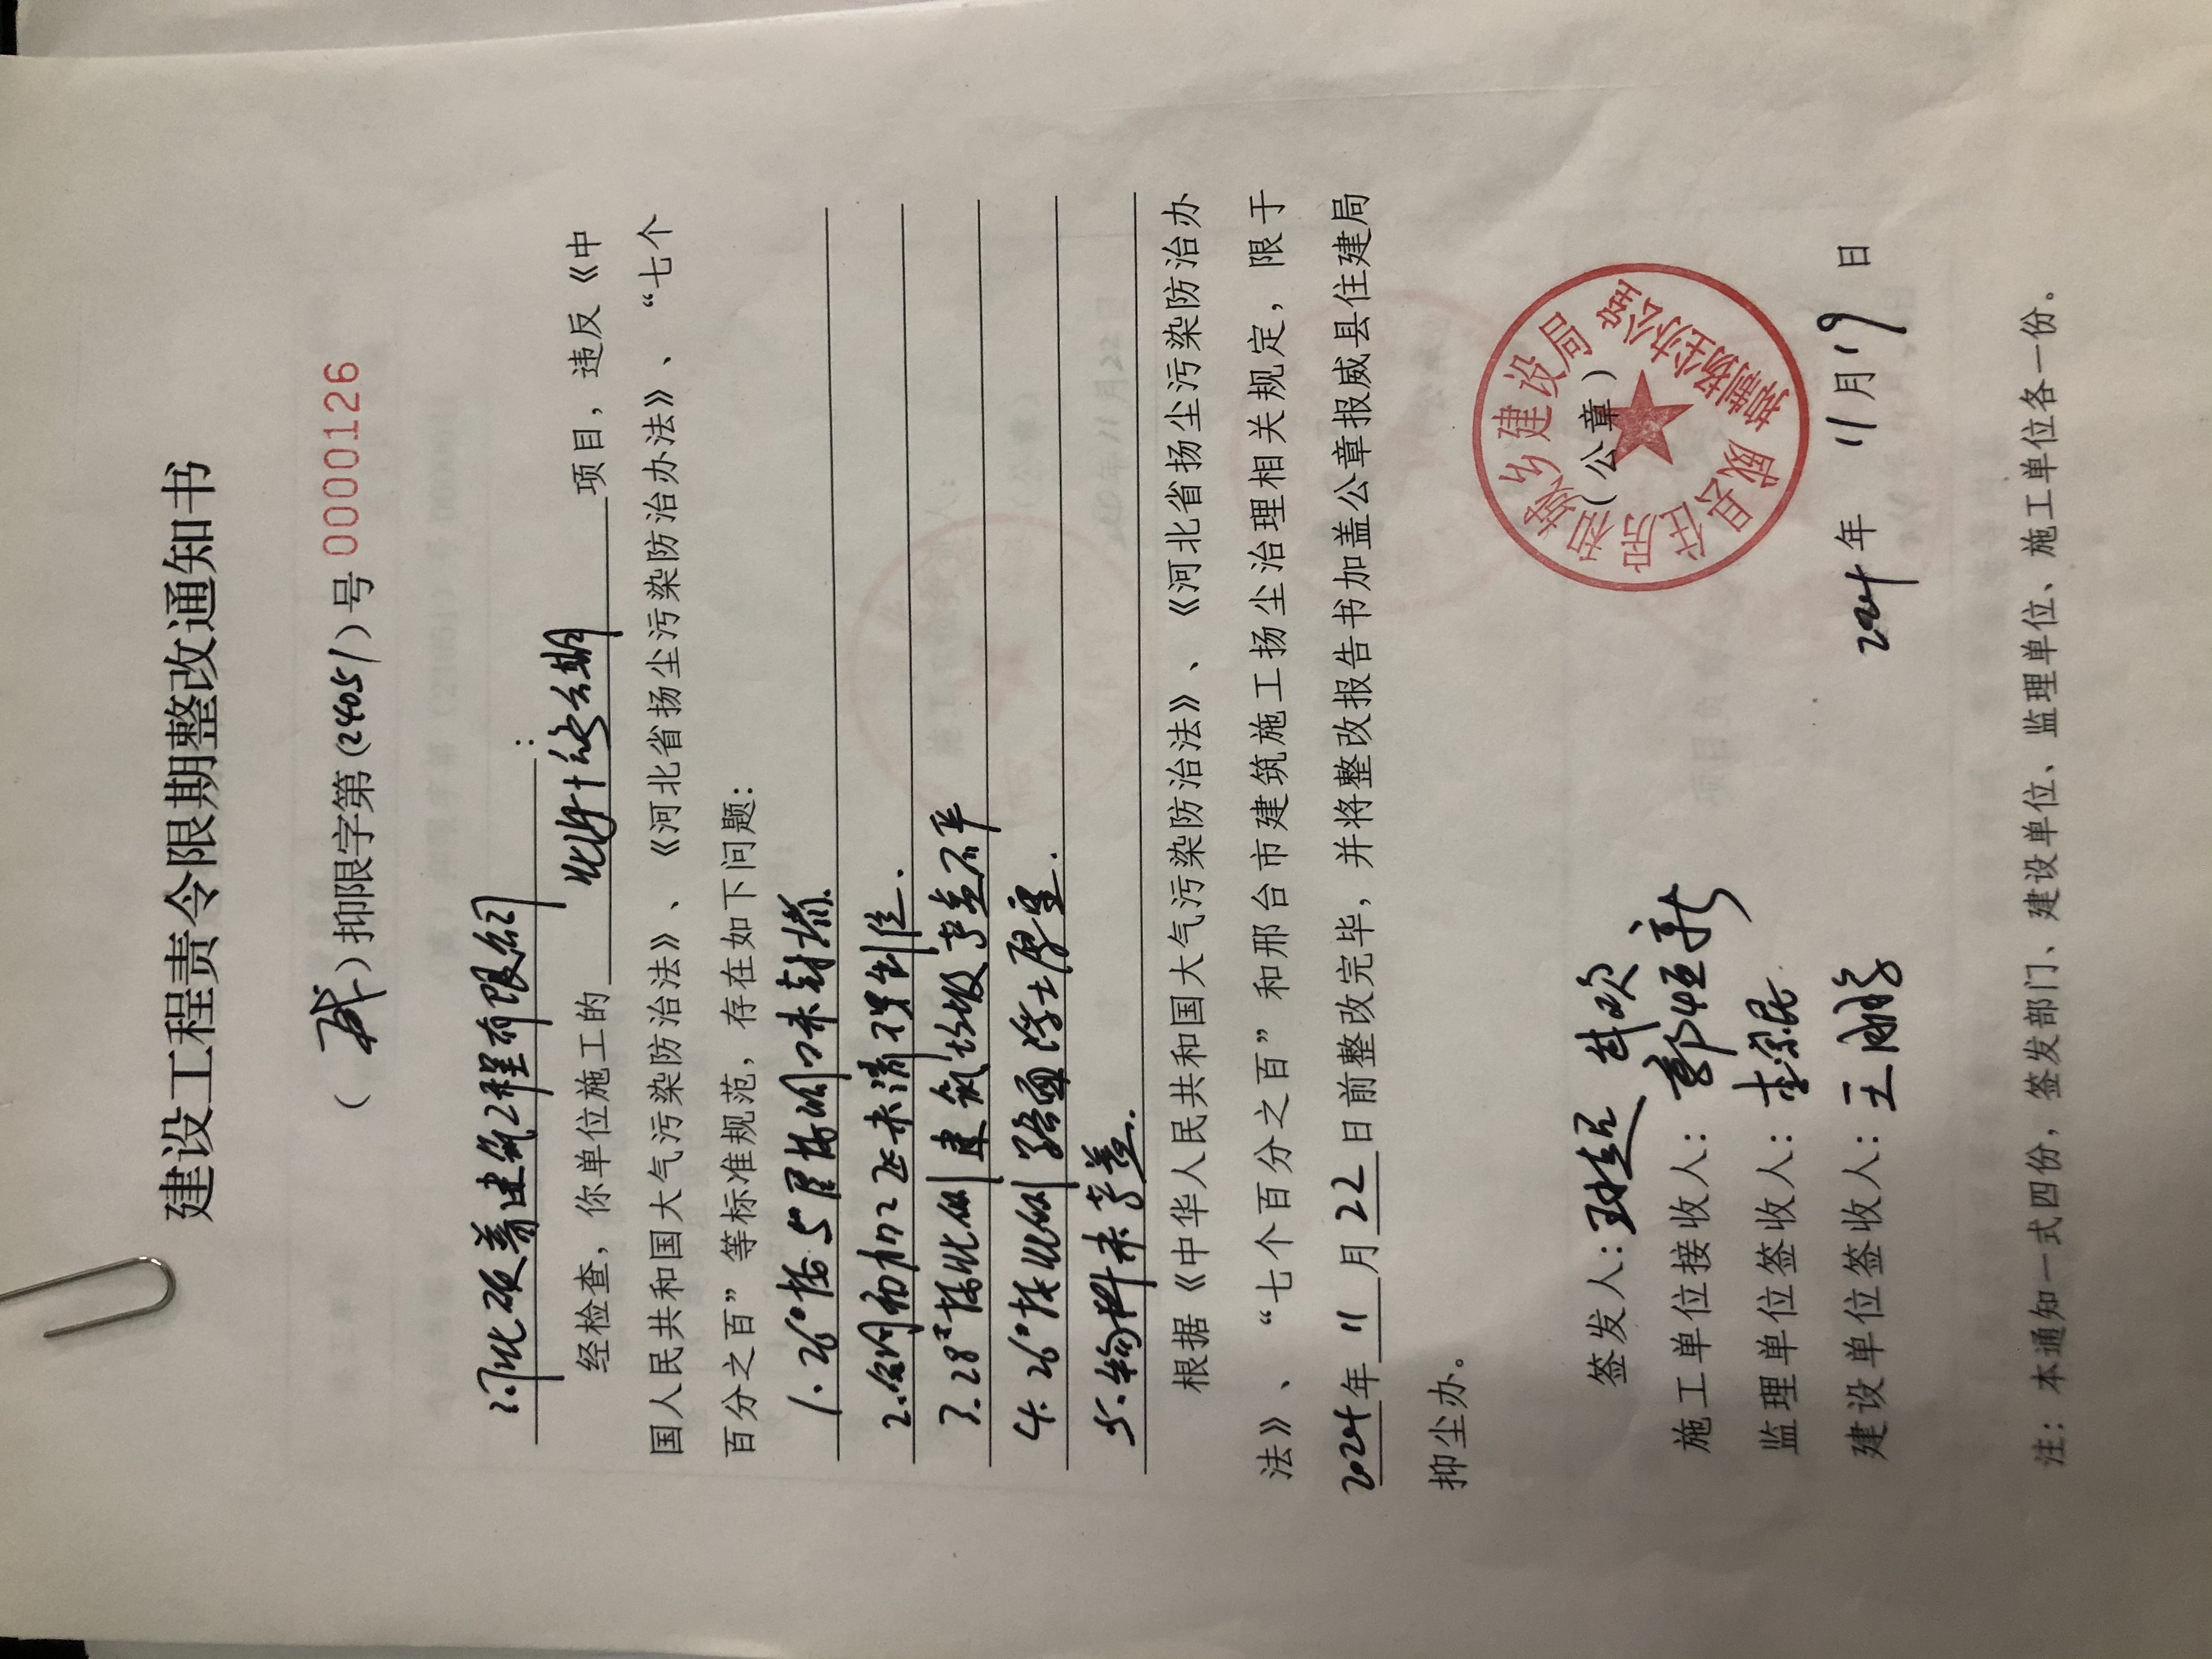 建设工程责令限期整改通知书
（威）抑限字第（24051）号 0000126
河北硕善建筑工程有限公司：
经检查，你单位施工的 项目，违反《中
国人民共和国大气污染防治法》、《河北省扬尘污染防治办法》、“七个
百分之百”等标准规范，存在如下问题：
1. 26#楼5层 洞口未封堵.
2.钢筋加工区未流 .
3. 28#楼北侧建筑垃圾苫盖不严
4. 26#楼北侧路面浮土厚重.
5. 物料未苫盖.
根据《中华人民共和国大气污染防治法》、《河北省扬尘污染防治办
法》、“七个百分之百”和邢台市建筑施工扬尘治理相关规定，限于
2024年11月22日前整改完毕，并将整改报告书加盖公章报威县住建局
抑尘办。
签发人：
施工单位接收人：郭恒新
监理单位签收人：
建设单位签收人：王鹏
（公章）
威县住房和城乡建设局
抑制扬尘办公室
2024年11月19日
注：本通知一式四份，签发部门、建设单位、监理单位、施工单位各一份。